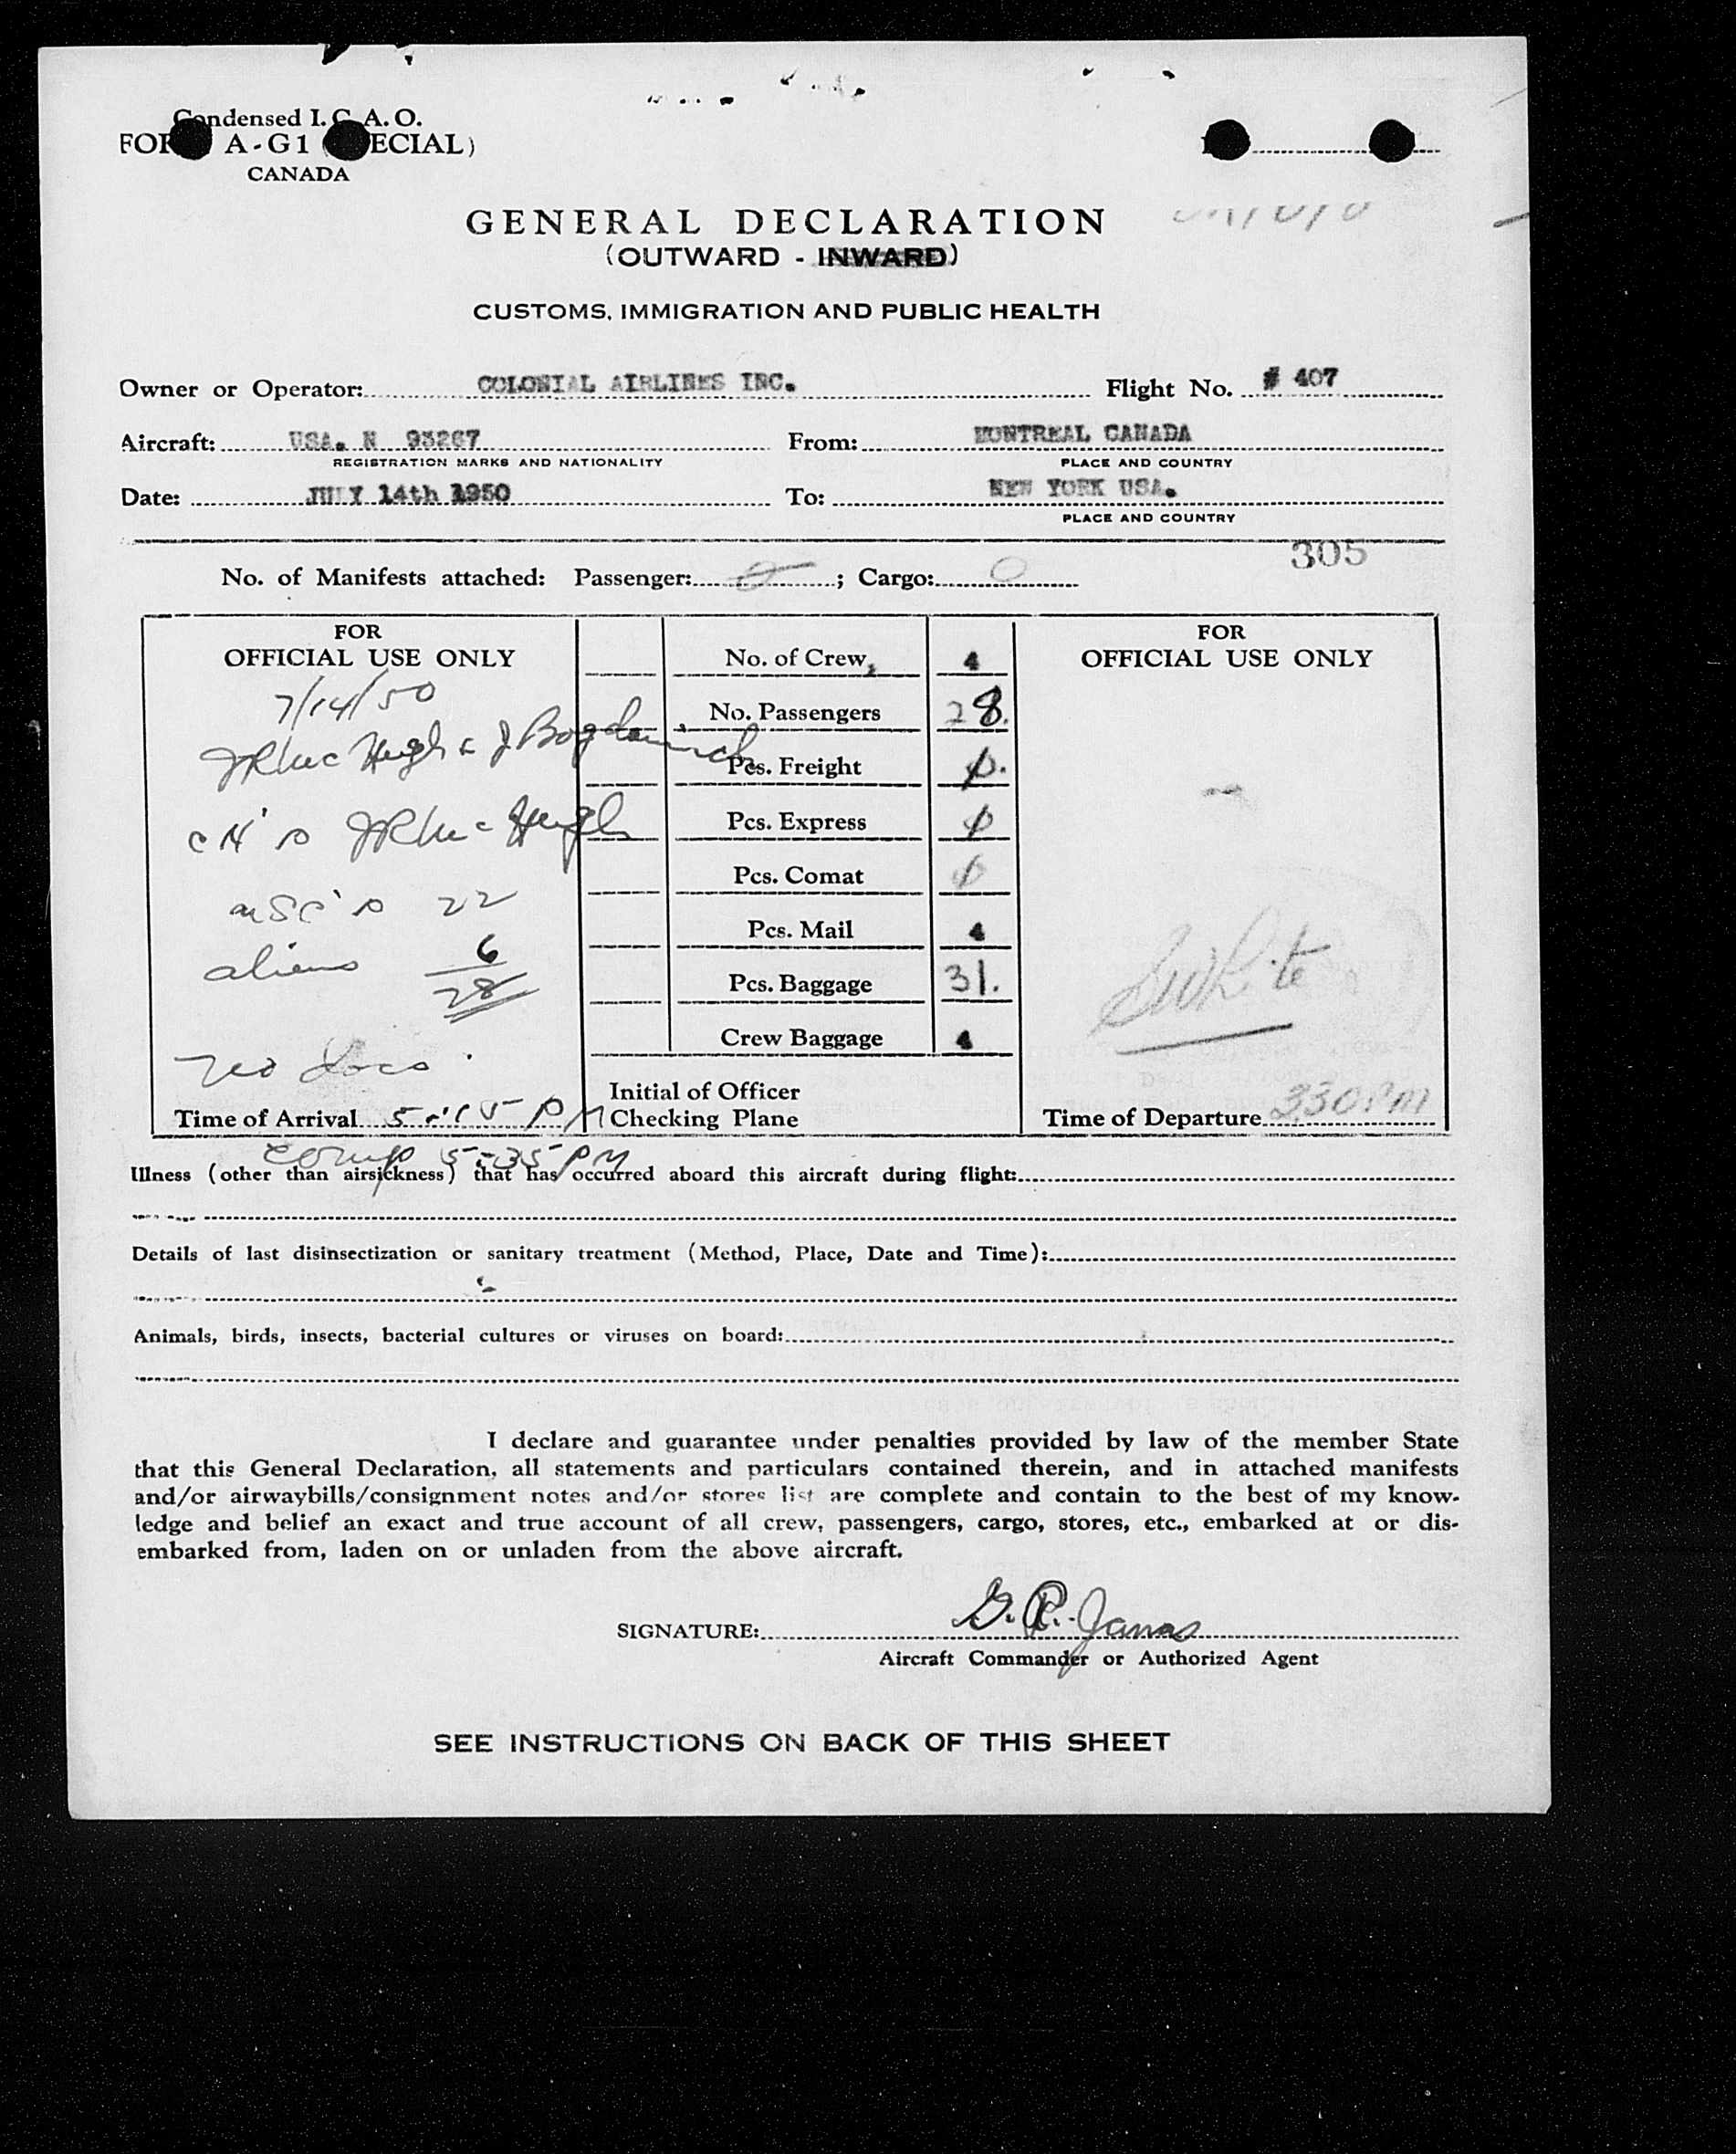 Condensed I. C. A. O.
FORM A-G1 (SPECIAL)
CANADA
GENERAL DECLARATION
(OUTWARD - INWARD)
CUSTOMS, IMMIGRATION AND PUBLIC HEALTH
Owner or Operator: COLONIAL AIRLINES INC. Flight No. # 407
Aircraft: USA. N 93267 From: MONTREAL CANADA
REGISTRATION MARKS AND NATIONALITY PLACE AND COUNTRY
Date: JULY 14th 1950 To: NEW YORK USA.
PLACE AND COUNTRY
305
No. of Manifests attached: Passenger: 0 ; Cargo: 0
FOR
OFFICIAL USE ONLY
7/14/50
JR McHugh & J
JR McHugh
22
aliens 6
28
No docs.
Time of Arrival 5-15 PM
comp 5-35 PM
No. of Crew 4
No. Passengers 28.
Pcs. Freight 0.
Pcs. Express 0
Pcs. Comat 0
Pcs. Mail 4
Pcs. Baggage 31.
Crew Baggage 4
Initial of Officer
Checking Plane
FOR
OFFICIAL USE ONLY
White
Time of Departure 330 PM
Illness (other than airsickness) that has occurred aboard this aircraft during flight:
Details of last disinsectization or sanitary treatment (Method, Place, Date and Time):
Animals, birds, insects, bacterial cultures or viruses on board:
I declare and guarantee under penalties provided by law of the member State
that this General Declaration, all statements and particulars contained therein, and in attached manifests
and/or airwaybills/consignment notes and/or stores list are complete and contain to the best of my know-
ledge and belief an exact and true account of all crew, passengers, cargo, stores, etc., embarked at or dis-
embarked from, laden on or unladen from the above aircraft.
SIGNATURE: G. R. Janas
Aircraft Commander or Authorized Agent
SEE INSTRUCTIONS ON BACK OF THIS SHEET